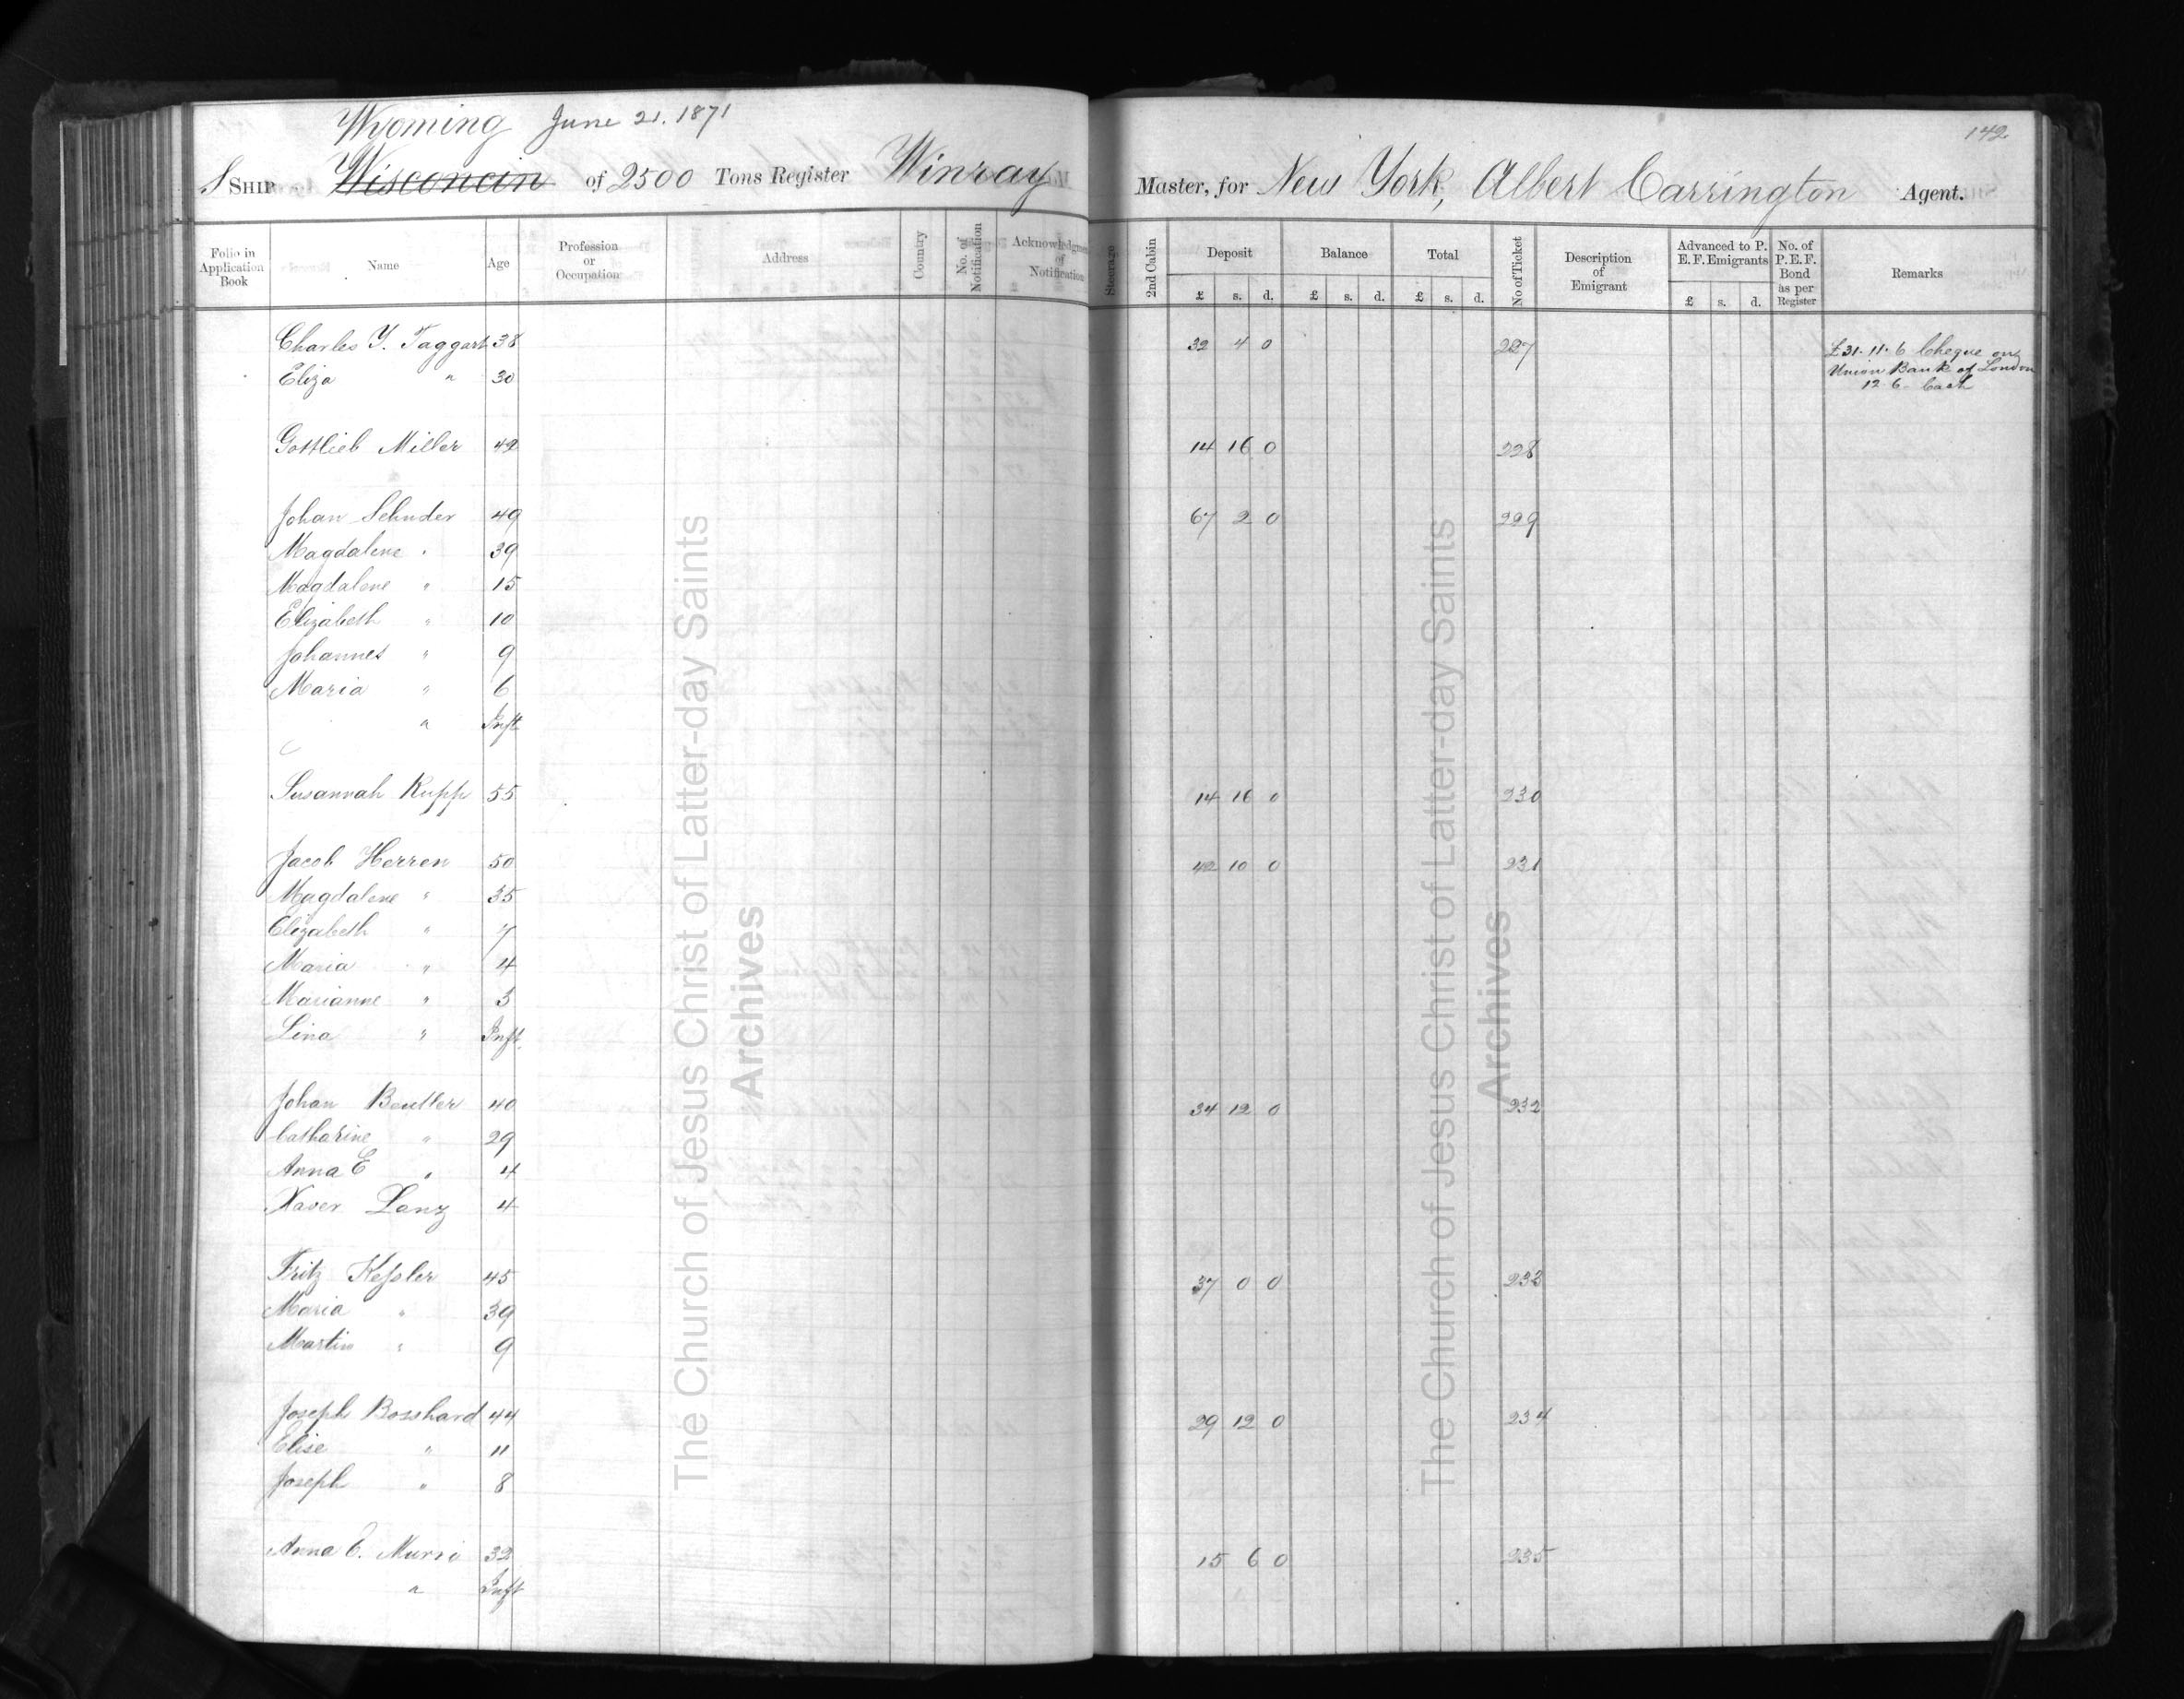 142
Wyoming June 21. 1871
S SHIP Wisconcin of 2500 Tons Register Winray Master, for New York, Albert Carrington Agent.
Folio in Application Book Name Age Profession or Occupation Address Country No. of Notification Acknowledgment of Notification Steerage 2nd Cabin Deposit £ s. d. Balance £ s. d. Total £ s. d. No of Ticket Description of Emigrant Advanced to P. E. F. Emigrants £ s. d. No. of P. E. F. Bond as per Register Remarks
Charles Y. Taggart 38 32 4 0 227 £31.11.6 Cheque on
Eliza " 30 Union Bank of London
12.6 - Cash
Gottlieb Miller 42 14 16 0 228
Johan Schuder 49 67 2 0 229
Magdalene " 39
Magdalene " 15
Elizabeth " 10
Johannes " 9
Maria " 6
" Inft
Susannah Rupp 55 14 16 0 230
Jacob Herren 50 42 10 0 231
Magdalene " 35
Elizabeth " 7
Maria " 4
Marianne " 3
Lina " Inft.
Johan Beutler 40 34 12 0 232
Catharine " 29
Anna E " 4
Xaver Lanz 4
Fritz Kessler 45 37 0 0 233
Maria " 39
Martin " 9
Joseph Bosshard 44 29 12 0 234
Elise " 11
Joseph " 8
Anna E. Murri 32 15 6 0 235
" Inft
The Church of Jesus Christ of Latter-day Saints
Archives
The Church of Jesus Christ of Latter-day Saints
Archives